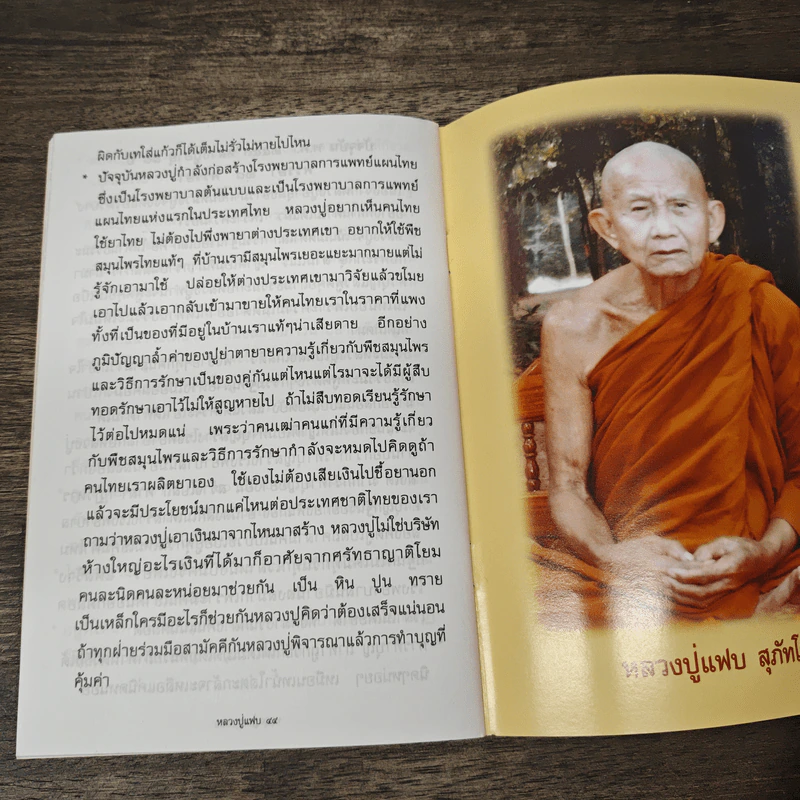 ผิดกับเทใส่แก้วก็ได้เต็มไม่รั่วไม่หายไปไหน
* ปัจจุบันหลวงปู่กำลังก่อสร้างโรงพยาบาลการแพทย์แผนไทย
ซึ่งเป็นโรงพยาบาลต้นแบบและเป็นโรงพยาบาลการแพทย์
แผนไทยแห่งแรกในประเทศไทย หลวงปู่อยากเห็นคนไทย
ใช้ยาไทย ไม่ต้องไปพึ่งพายาต่างประเทศเขา อยากให้ใช้พืช
สมุนไพรไทยแท้ๆ ที่บ้านเรามีสมุนไพรเยอะแยะมากมายแต่ไม่
รู้จักเอามาใช้ ปล่อยให้ต่างประเทศเขามาวิจัยแล้วขโมย
เอาไปแล้วเอากลับเข้ามาขายให้คนไทยเราในราคาที่แพง
ทั้งที่เป็นของที่มีอยู่ในบ้านเราแท้ๆน่าเสียดาย อีกอย่าง
ภูมิปัญญาล้ำค่าของปู่ย่าตายายความรู้เกี่ยวกับพืชสมุนไพร
และวิธีการรักษาเป็นของคู่กันแต่ไหนแต่ไรมาจะได้มีผู้สืบ
ทอดรักษาเอาไว้ไม่ให้สูญหายไป ถ้าไม่สืบทอดเรียนรู้รักษา
ไว้ต่อไปหมดแน่ เพระว่าคนเฒ่าคนแก่ที่มีความรู้เกี่ยว
กับพืชสมุนไพรและวิธีการรักษากำลังจะหมดไปคิดดูถ้า
คนไทยเราผลิตยาเอง ใช้เองไม่ต้องเสียเงินไปซื้อยานอก
แล้วจะมีประโยชน์มากแค่ไหนต่อประเทศชาติไทยของเรา
ถามว่าหลวงปู่เอาเงินมาจากไหนมาสร้าง หลวงปู่ไม่ใช่บริษัท
ห้างใหญ่อะไรเงินที่ได้มาก็อาศัยจากศรัทธาญาติโยม
คนละนิดคนละหน่อยมาช่วยกัน เป็น หิน ปูน ทราย
เป็นเหล็กใครมีอะไรก็ช่วยกันหลวงปู่คิดว่าต้องเสร็จแน่นอน
ถ้าทุกฝ่ายร่วมมือสามัคคีกันหลวงปู่พิจารณาแล้วการทำบุญที่
คุ้มค่า
หลวงปู่แฟบ ๔๔
หลวงปู่แฟบ สุภัทโ